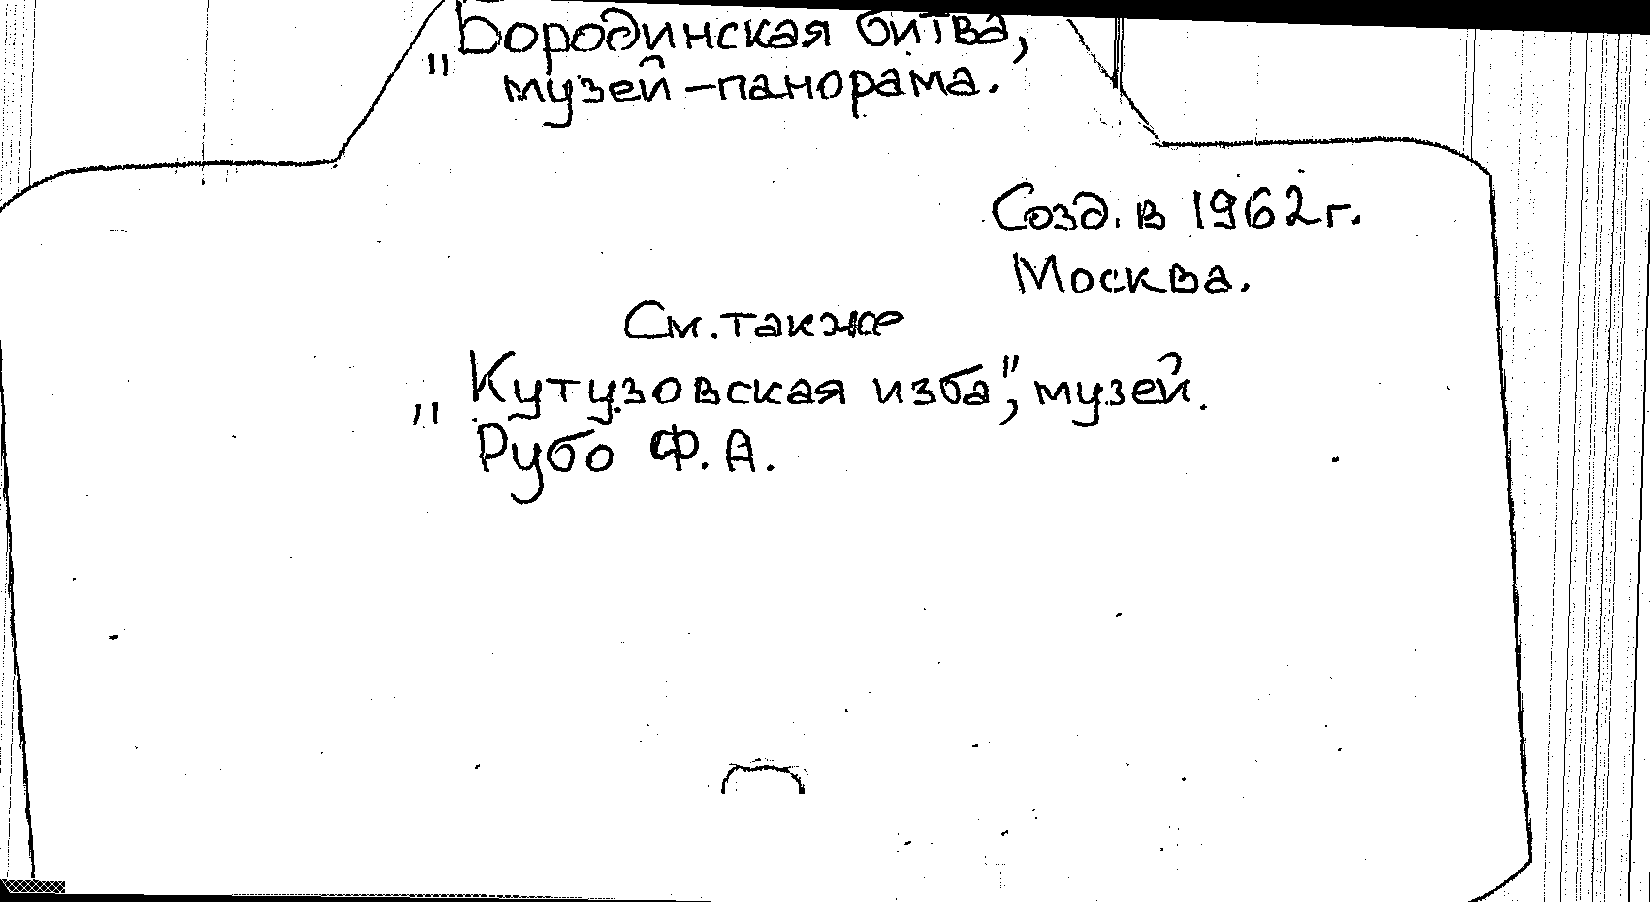 „Бородинская битва,
музей-панорама.
Созд. в 1962г.
Москва.
См. также
„Кутузовская изба", музей.
Рубо Ф.А.